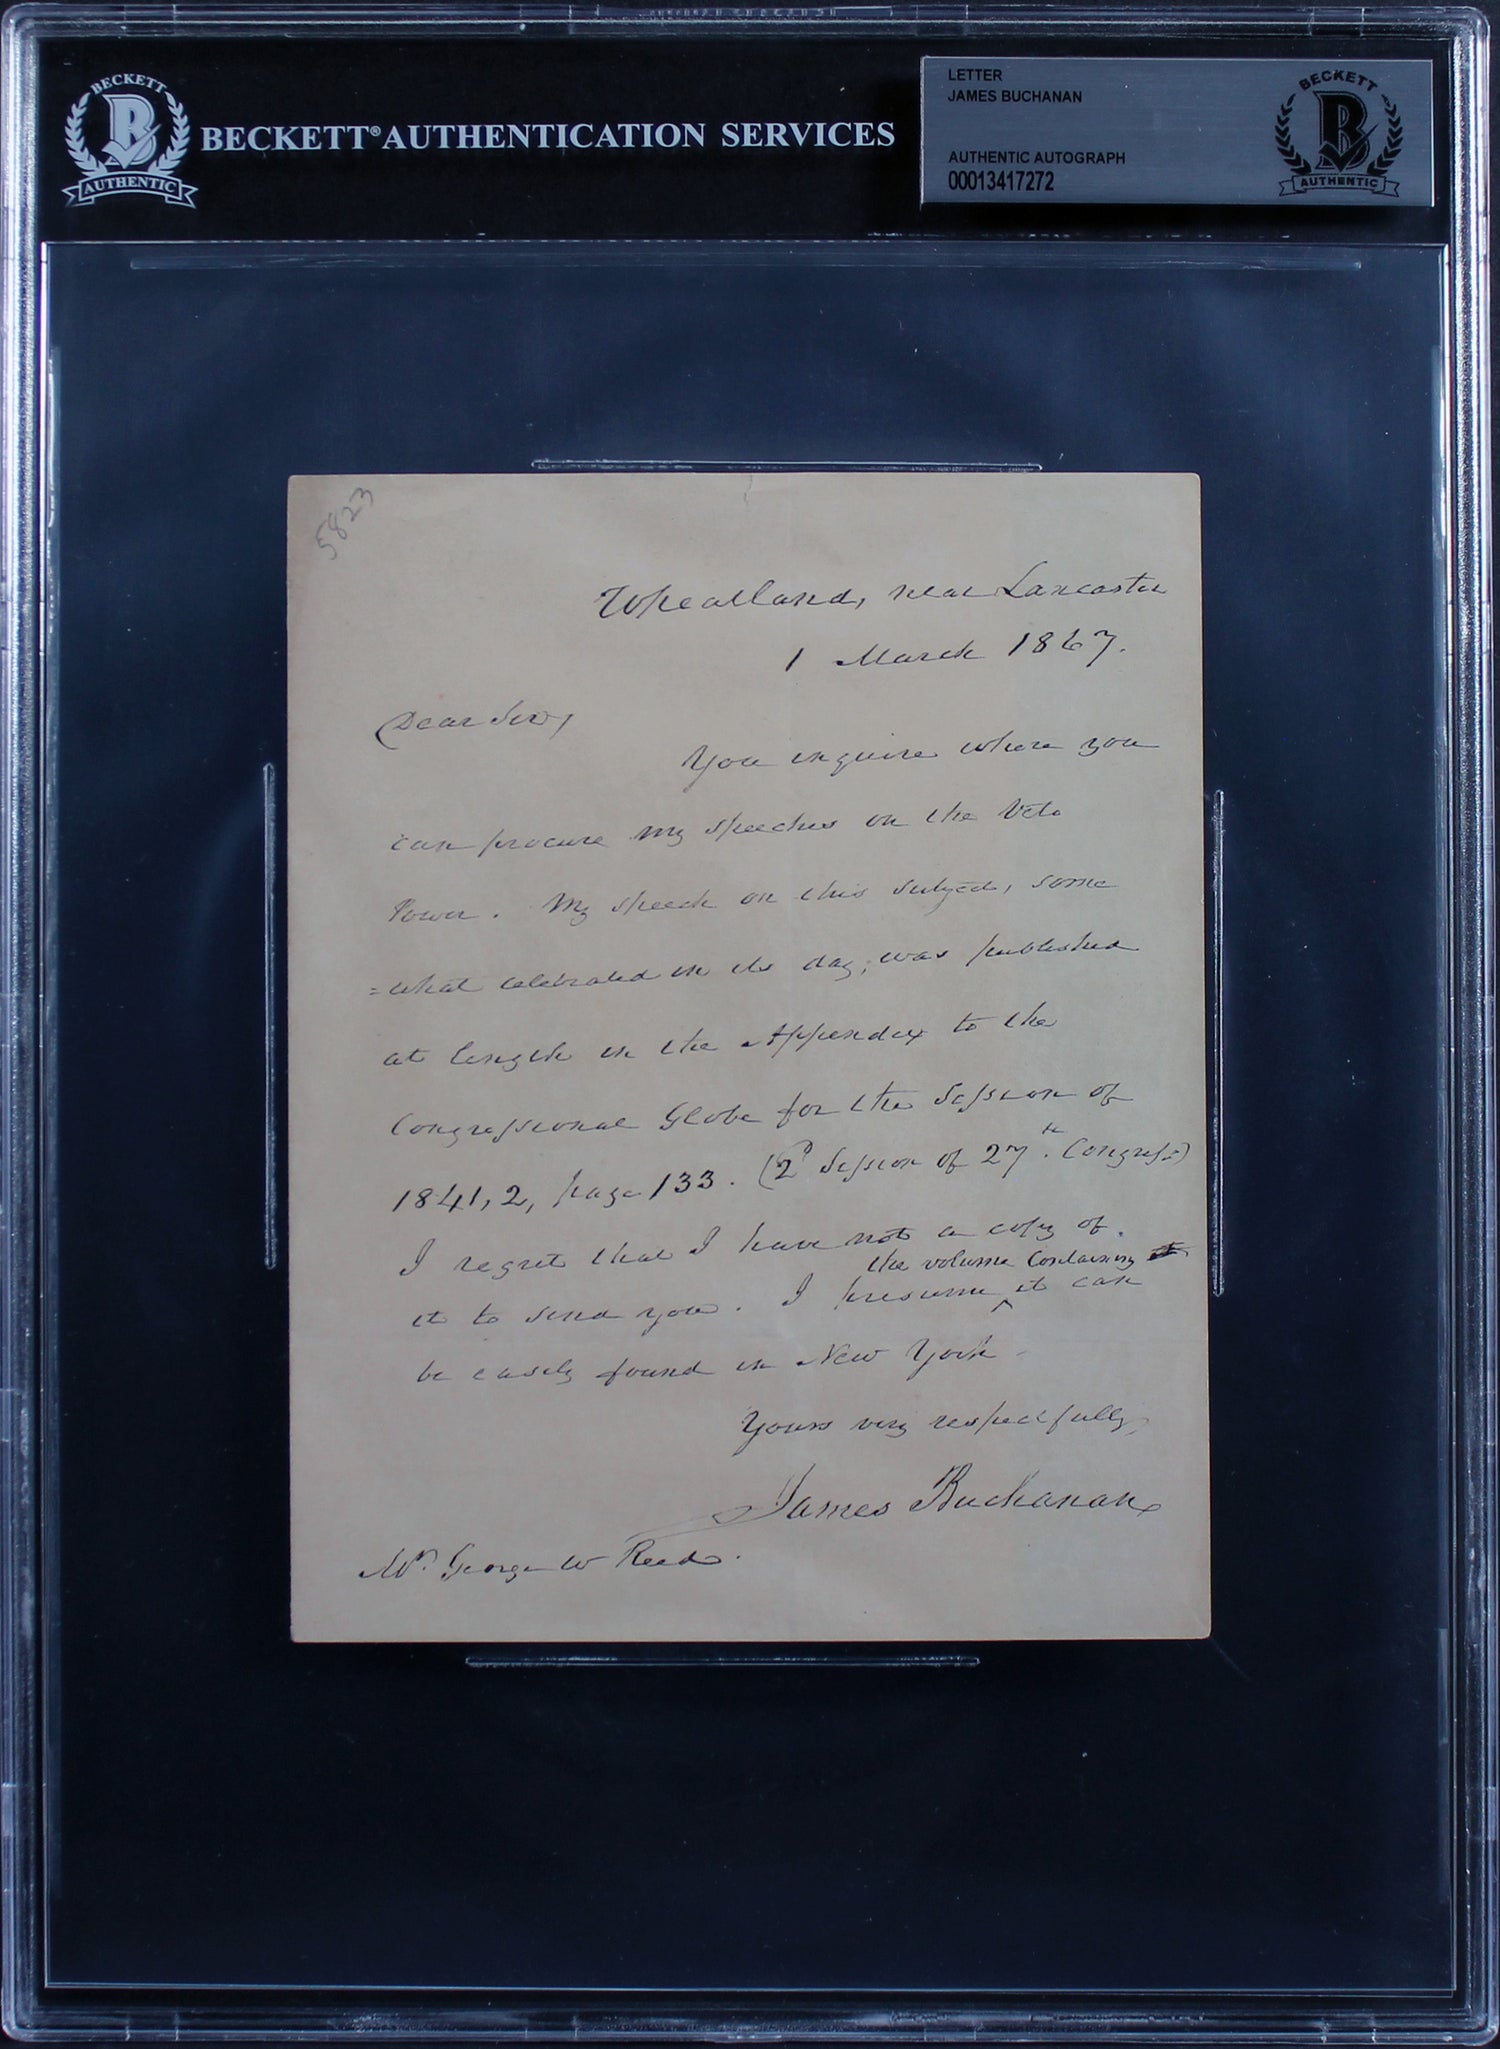 BECKETT
B
AUTHENTIC
BECKETT® AUTHENTICATION SERVICES
LETTER
JAMES BUCHANAN
AUTHENTIC AUTOGRAPH
00013417272
BECKETT
B
AUTHENTIC
5823
Wheatland, near Lancaster
1 March 1867.
Dear Sir,
You inquire where you
can procure my speeches on the Veto
Power. My speech on this subject, some
=what celebrated in its day, was published
at length in the Appendix to the
Congressional Globe for the Session of
1841,2, page 133. (2d Session of 27th Congress)
I regret that I have not a copy of
the volume containing it
it to send you. I presume ^ it can
be easily found in New York
Yours very respectfully,
James Buchanan
Mr. George W Reed.